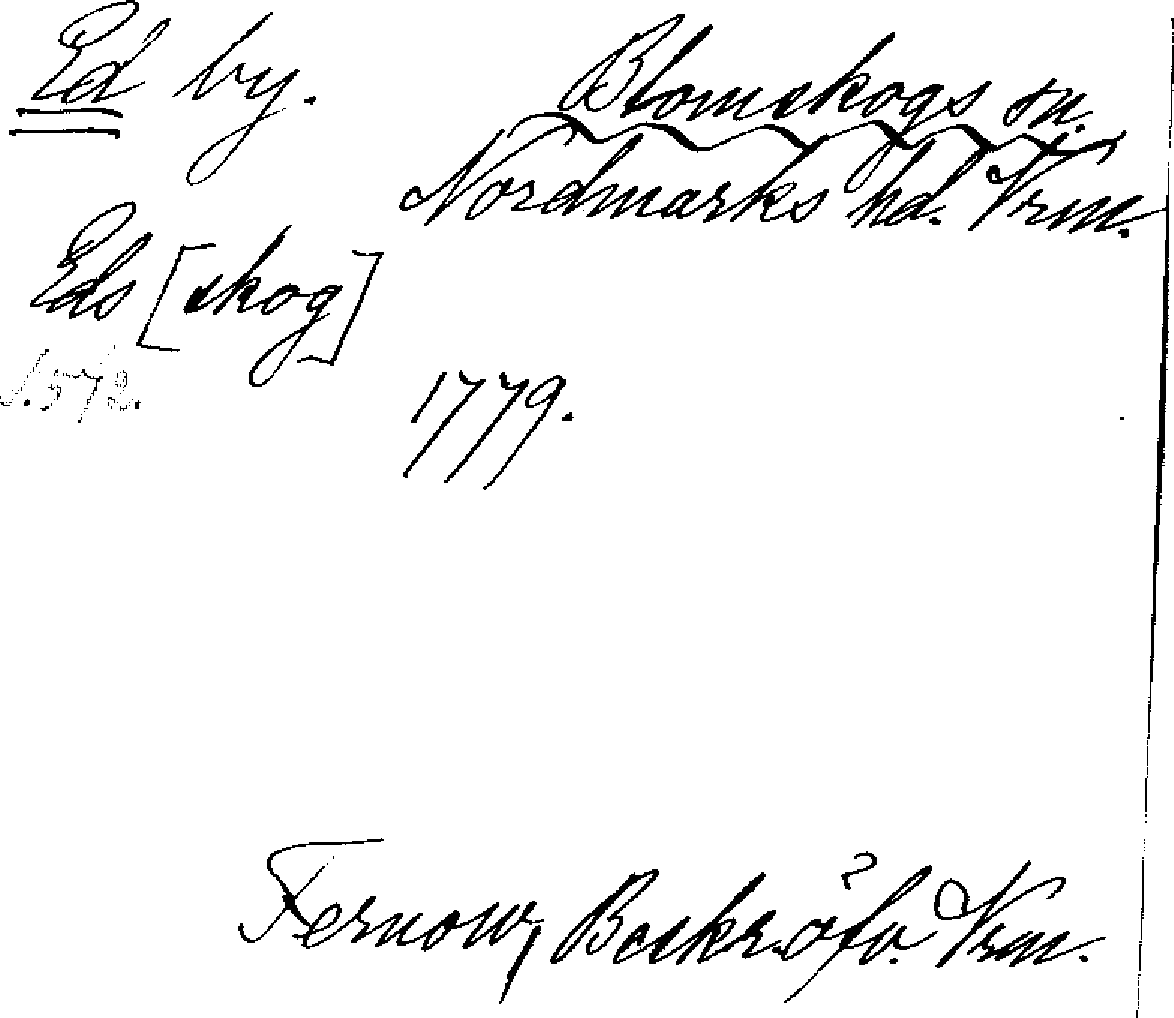 Ed by.
Blomskogs sn.
Nordmarks hd. Vrm.
Eds [skog]
s. 572.
1779.
Fernow, Beskr. öfv. Vrm.